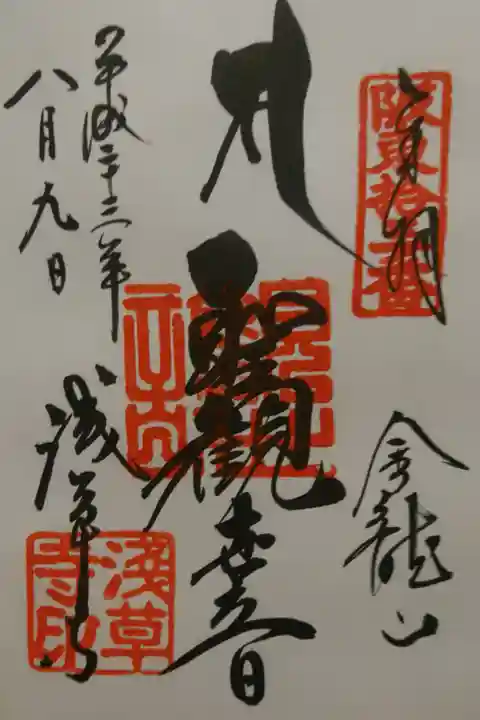 奉拝
阪東拾三番
金龍山
聖観世音
平成二十三年
八月九日
浅草寺
淺草寺印